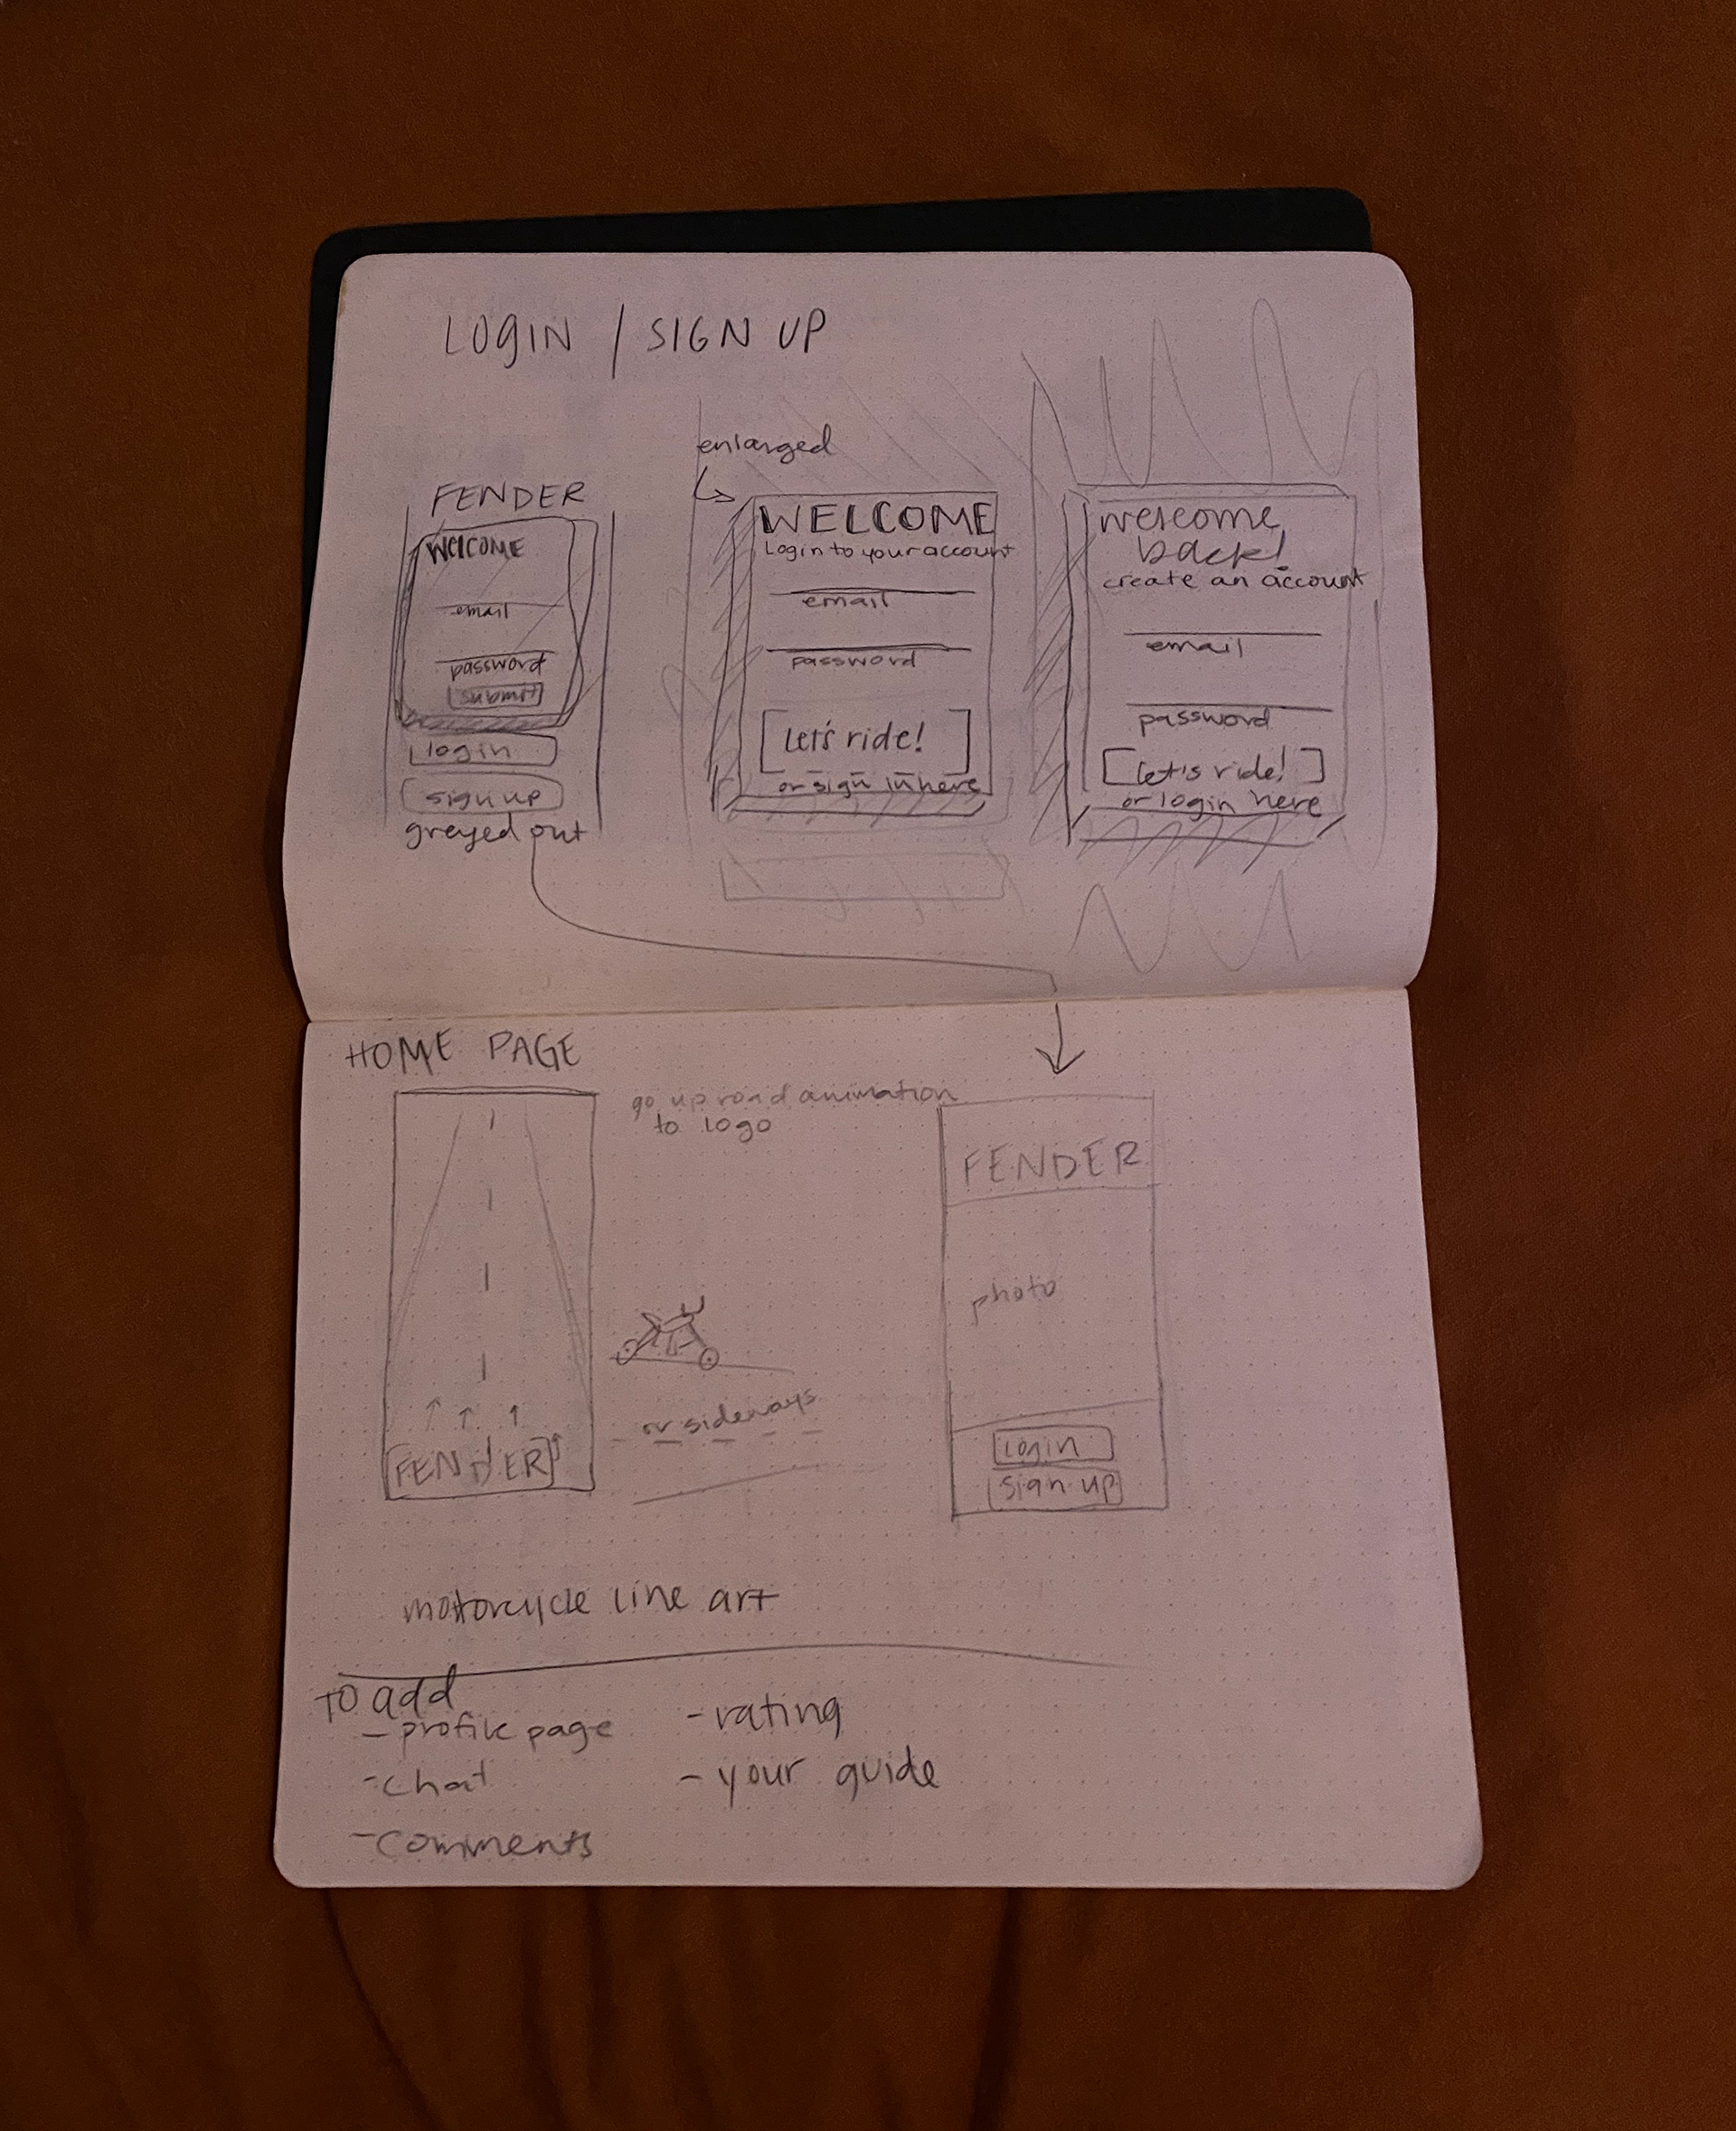 LOGIN / SIGN UP
FENDER
WELCOME
email
password
submit
login
sign up
greyed out
enlarged
WELCOME
Login to your account
email
password
Let's ride!
or sign in here
welcome
back!
create an account
email
password
let's ride!
or login here
HOME PAGE
go up road animation
to logo
FENDER
or sideways
FENDER
photo
login
sign up
motorcycle line art
TO add
- profile page
- chat
- comments
- rating
- your guide